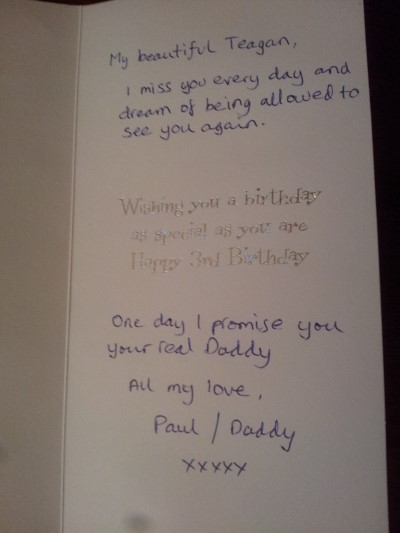 My beautiful Teagan,
I miss you every day and
dream of being allowed to
see you again.
Wishing you a birthday
as special as you are
Happy 3rd Birthday
One day I promise you
your real Daddy
All my love,
Paul / Daddy
xxxxx